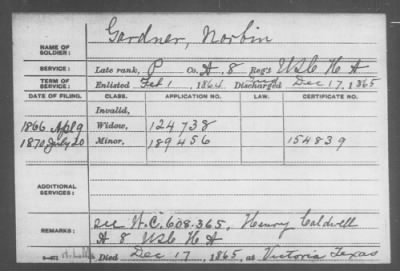 Gardner, Norbin
NAME OF SOLDIER:
SERVICE: Late rank, P Co. A. 8 Reg't USC H A
TERM OF SERVICE: Enlisted Feb 1, 1864. Discharged Dec 17, 1865
DATE OF FILING. CLASS. APPLICATION NO. LAW. CERTIFICATE NO.
Invalid,
1866 Apl 9 Widow, 124738
1870 July 20 Minor, 189456 154839
ADDITIONAL SERVICES:
REMARKS: see W.C. 608.365, Henry Caldwell
A 8 USC H A
Died Dec 17, 1865, at Victoria Texas